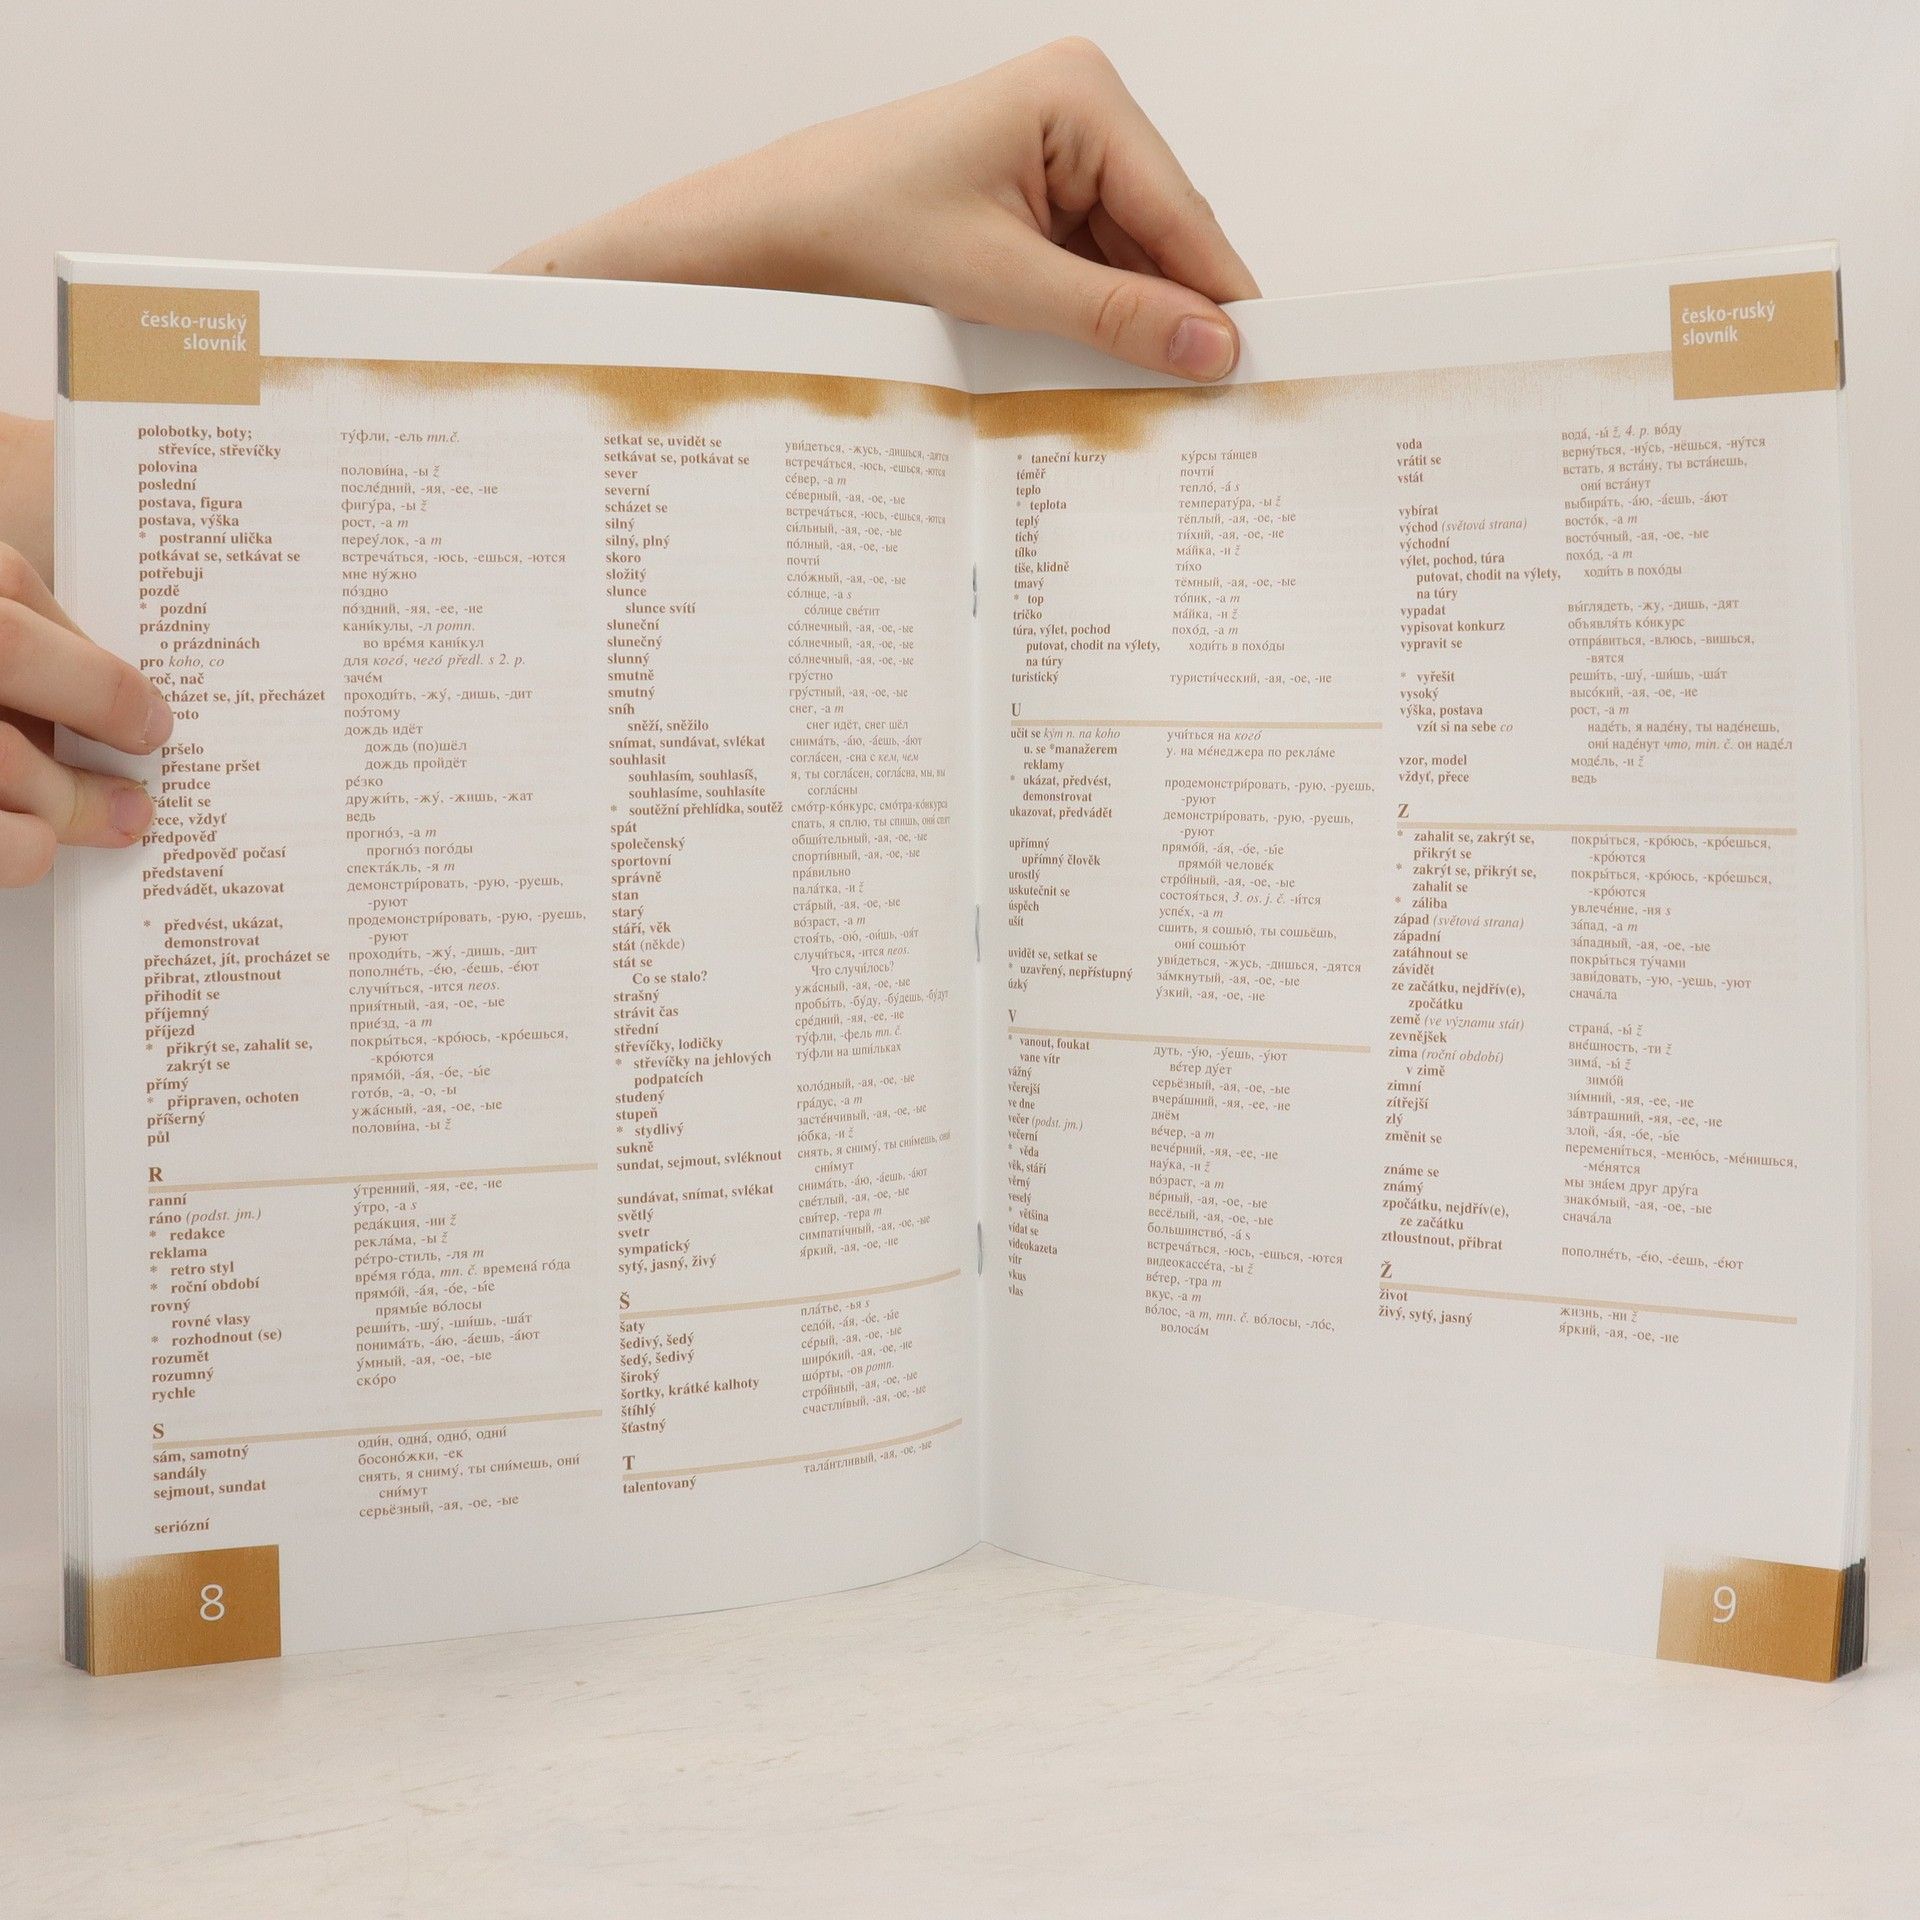 česko-ruský
slovník
polobotky, boty; ту́фли, -ель mn.č.
střevíce, střevíčky
polovina полови́на, -ы ž
poslední после́дний, -яя, -ее, -ие
postava, figura фигу́ра, -ы ž
postava, výška рост, -а m
* postranní ulička переу́лок, -а m
potkávat se, setkávat se встреча́ться, -юсь, -ешься, -ются
potřebuji мне ну́жно
pozdě по́здно
* pozdní по́здний, -яя, -ее, -ие
prázdniny кани́кулы, -л pomn.
o prázdninách во вре́мя кани́кул
pro koho, co для кого́, чего́ předl. s 2. p.
roč, nač заче́м
cházet se, jít, přecházet проходи́ть, -жу́, -дишь, -дит
roto поэ́тому
дождь идёт
pršelo дождь (по)шёл
přestane pršet дождь пройдёт
* prudce ре́зко
átelit se дружи́ть, -жу́, -жишь, -жат
ece, vždyť ведь
předpověď прогно́з, -а m
předpověď počasí прогно́з пого́ды
představení спекта́кль, -я m
předvádět, ukazovat демонстри́ровать, -рую, -руешь,
-руют
* předvést, ukázat, продемонстри́ровать, -рую, -руешь,
demonstrovat -руют
přecházet, jít, procházet se проходи́ть, -жу́, -дишь, -дит
přibrat, ztloustnout пополне́ть, -е́ю, -е́ешь, -е́ют
přihodit se случи́ться, -ится neos.
příjemný прия́тный, -ая, -ое, -ые
příjezd прие́зд, -а m
* přikrýt se, zahalit se, покры́ться, -кро́юсь, -кро́ешься,
zakrýt se -кро́ются
přímý прямо́й, -а́я, -о́е, -ы́е
* připraven, ochoten гото́в, -а, -о, -ы
příšerný ужа́сный, -ая, -ое, -ые
půl полови́на, -ы ž
R
ranní у́тренний, -яя, -ее, -ие
ráno (podst. jm.) у́тро, -а s
* redakce реда́кция, -ии ž
reklama рекла́ма, -ы ž
* retro styl ре́тро-стиль, -ля m
* roční období вре́мя го́да, mn. č. времена́ го́да
rovný прямо́й, -а́я, -о́е, -ы́е
rovné vlasy прямы́е во́лосы
* rozhodnout (se) реши́ть, -шу́, -ши́шь, -ша́т
rozumět понима́ть, -а́ю, -а́ешь, -а́ют
rozumný у́мный, -ая, -ое, -ые
rychle ско́ро
S
sám, samotný оди́н, одна́, одно́, одни́
sandály босоно́жки, -ек
sejmout, sundat снять, я сниму́, ты сни́мешь, они́
сни́мут
seriózní серьёзный, -ая, -ое, -ые
8
setkat se, uvidět se уви́деться, -жусь, -дишься, -дятся
setkávat se, potkávat se встреча́ться, -юсь, -ешься, -ются
sever се́вер, -а m
severní се́верный, -ая, -ое, -ые
scházet se встреча́ться, -юсь, -ешься, -ются
silný си́льный, -ая, -ое, -ые
silný, plný по́лный, -ая, -ое, -ые
skoro почти́
složitý сло́жный, -ая, -ое, -ые
slunce со́лнце, -а s
slunce svítí со́лнце све́тит
sluneční со́лнечный, -ая, -ое, -ые
slunečný со́лнечный, -ая, -ое, -ые
slunný со́лнечный, -ая, -ое, -ые
smutně гру́стно
smutný гру́стный, -ая, -ое, -ые
sníh снег, -а m
sněží, sněžilo снег идёт, снег шёл
snímat, sundávat, svlékat снима́ть, -а́ю, -а́ешь, -а́ют
souhlasit согла́сен, -сна с кем, чем
souhlasím, souhlasíš, я, ты согла́сен, согла́сна, мы, вы
souhlasíme, souhlasíte согла́сны
* soutěžní přehlídka, soutěž смо́тр-ко́нкурс, смо́тра-ко́нкурса
spát спать, я сплю, ты спишь, они́ спят
společenský общи́тельный, -ая, -ое, -ые
sportovní спорти́вный, -ая, -ое, -ые
správně пра́вильно
stan пала́тка, -и ž
starý ста́рый, -ая, -ое, -ые
stáří, věk во́зраст, -а m
stát (někde) стоя́ть, -ою́, -ои́шь, -оя́т
stát se случи́ться, -ится neos.
Co se stalo? Что случи́лось?
strašný ужа́сный, -ая, -ое, -ые
strávit čas пробы́ть, -бу́ду, -бу́дешь, -бу́дут
střední сре́дний, -яя, -ее, -ие
střevíčky, lodičky ту́фли, -фель mn. č.
* střevíčky na jehlových ту́фли на шпи́льках
podpatcích
studený холо́дный, -ая, -ое, -ые
stupeň гра́дус, -а m
* stydlivý засте́нчивый, -ая, -ое, -ые
sukně ю́бка, -и ž
sundat, sejmout, svléknout снять, я сниму́, ты сни́мешь, они́
сни́мут
sundávat, snímat, svlékat снима́ть, -а́ю, -а́ешь, -а́ют
světlý све́тлый, -ая, -ое, -ые
svetr сви́тер, -тера m
sympatický симпати́чный, -ая, -ое, -ые
sytý, jasný, živý я́ркий, -ая, -ое, -ие
Š
šaty пла́тье, -ья s
šedivý, šedý седо́й, -а́я, -о́е, -ы́е
šedý, šedivý се́рый, -ая, -ое, -ые
široký широ́кий, -ая, -ое, -ие
šortky, krátké kalhoty шо́рты, -ов pomn.
štíhlý стро́йный, -ая, -ое, -ые
šťastný счастли́вый, -ая, -ое, -ые
T
talentovaný тала́нтливый, -ая, -ое, -ые
česko-ruský
slovník
* taneční kurzy ку́рсы та́нцев
téměř почти́
teplo тепло́, -а́ s
* teplota температу́ра, -ы ž
teplý тёплый, -ая, -ое, -ые
tichý ти́хий, -ая, -ое, -ие
tílko ма́йка, -и ž
tiše, klidně ти́хо
tmavý тёмный, -ая, -ое, -ые
* top то́пик, -а m
tričko ма́йка, -и ž
túra, výlet, pochod похо́д, -а m
putovat, chodit na výlety, ходи́ть в похо́ды
na túry
turistický туристи́ческий, -ая, -ое, -ие
U
učit se kým n. na koho учи́ться на кого́
u. se *manažerem у. на ме́неджера по рекла́ме
reklamy
* ukázat, předvést, продемонстри́ровать, -рую, -руешь,
demonstrovat -руют
ukazovat, předvádět демонстри́ровать, -рую, -руешь,
-руют
upřímný прямо́й, -а́я, -о́е, -ы́е
upřímný člověk прямо́й челове́к
urostlý стро́йный, -ая, -ое, -ые
uskutečnit se состоя́ться, 3. os. j. č. -и́тся
úspěch успе́х, -а m
ušít сшить, я сошью́, ты сошьёшь,
они́ сошью́т
uvidět se, setkat se уви́деться, -жусь, -дишься, -дятся
* uzavřený, nepřístupný за́мкнутый, -ая, -ое, -ые
úzký у́зкий, -ая, -ое, -ие
V
* vanout, foukat дуть, -у́ю, -у́ешь, -у́ют
vane vítr ве́тер ду́ет
vážný серьёзный, -ая, -ое, -ые
včerejší вчера́шний, -яя, -ее, -ие
ve dne днём
večer (podst. jm.) ве́чер, -а m
večerní вече́рний, -яя, -ее, -ие
* věda нау́ка, -и ž
věk, stáří во́зраст, -а m
věrný ве́рный, -ая, -ое, -ые
veselý весёлый, -ая, -ое, -ые
* většina большинство́, -а́ s
vídat se встреча́ться, -юсь, -ешься, -ются
videokazeta видеокассе́та, -ы ž
vítr ве́тер, -тра m
vkus вкус, -а m
vlas во́лос, -а m, mn. č. во́лосы, -ло́с,
волоса́м
voda вода́, -ы́ ž, 4. p. во́ду
vrátit se верну́ться, -ну́сь, -нёшься, -ну́тся
vstát встать, я вста́ну, ты вста́нешь,
они́ вста́нут
vybírat выбира́ть, -а́ю, -а́ешь, -а́ют
východ (světová strana) восто́к, -а m
východní восто́чный, -ая, -ое, -ые
výlet, pochod, túra похо́д, -а m
putovat, chodit na výlety, ходи́ть в похо́ды
na túry
vypadat вы́глядеть, -жу, -дишь, -дят
vypisovat konkurz объявля́ть ко́нкурс
vypravit se отпра́виться, -влюсь, -вишься,
-вятся
* vyřešit реши́ть, -шу́, -ши́шь, -ша́т
vysoký высо́кий, -ая, -ое, -ие
výška, postava рост, -а m
vzít si na sebe co наде́ть, я наде́ну, ты наде́нешь,
они́ наде́нут что, min. č. он наде́л
vzor, model моде́ль, -и ž
vždyť, přece ведь
Z
* zahalit se, zakrýt se, покры́ться, -кро́юсь, -кро́ешься,
přikrýt se -кро́ются
* zakrýt se, přikrýt se, покры́ться, -кро́юсь, -кро́ешься,
zahalit se -кро́ются
* záliba увлече́ние, -ия s
západ (světová strana) за́пад, -а m
západní за́падный, -ая, -ое, -ые
zatáhnout se покры́ться ту́чами
závidět зави́довать, -ую, -уешь, -уют
ze začátku, nejdřív(e), снача́ла
zpočátku
země (ve významu stát) страна́, -ы́ ž
zevnějšek вне́шность, -ти ž
zima (roční období) зима́, -ы́ ž
v zimě зимо́й
zimní зи́мний, -яя, -ее, -ие
zítřejší за́втрашний, -яя, -ее, -ие
zlý злой, -а́я, -о́е, -ы́е
změnit se перемени́ться, -меню́сь, -ме́нишься,
-ме́нятся
známe se мы зна́ем друг дру́га
známý знако́мый, -ая, -ое, -ые
zpočátku, nejdřív(e), снача́ла
ze začátku
ztloustnout, přibrat пополне́ть, -е́ю, -е́ешь, -е́ют
Ž
život жизнь, -ни ž
živý, sytý, jasný я́ркий, -ая, -ое, -ие
9